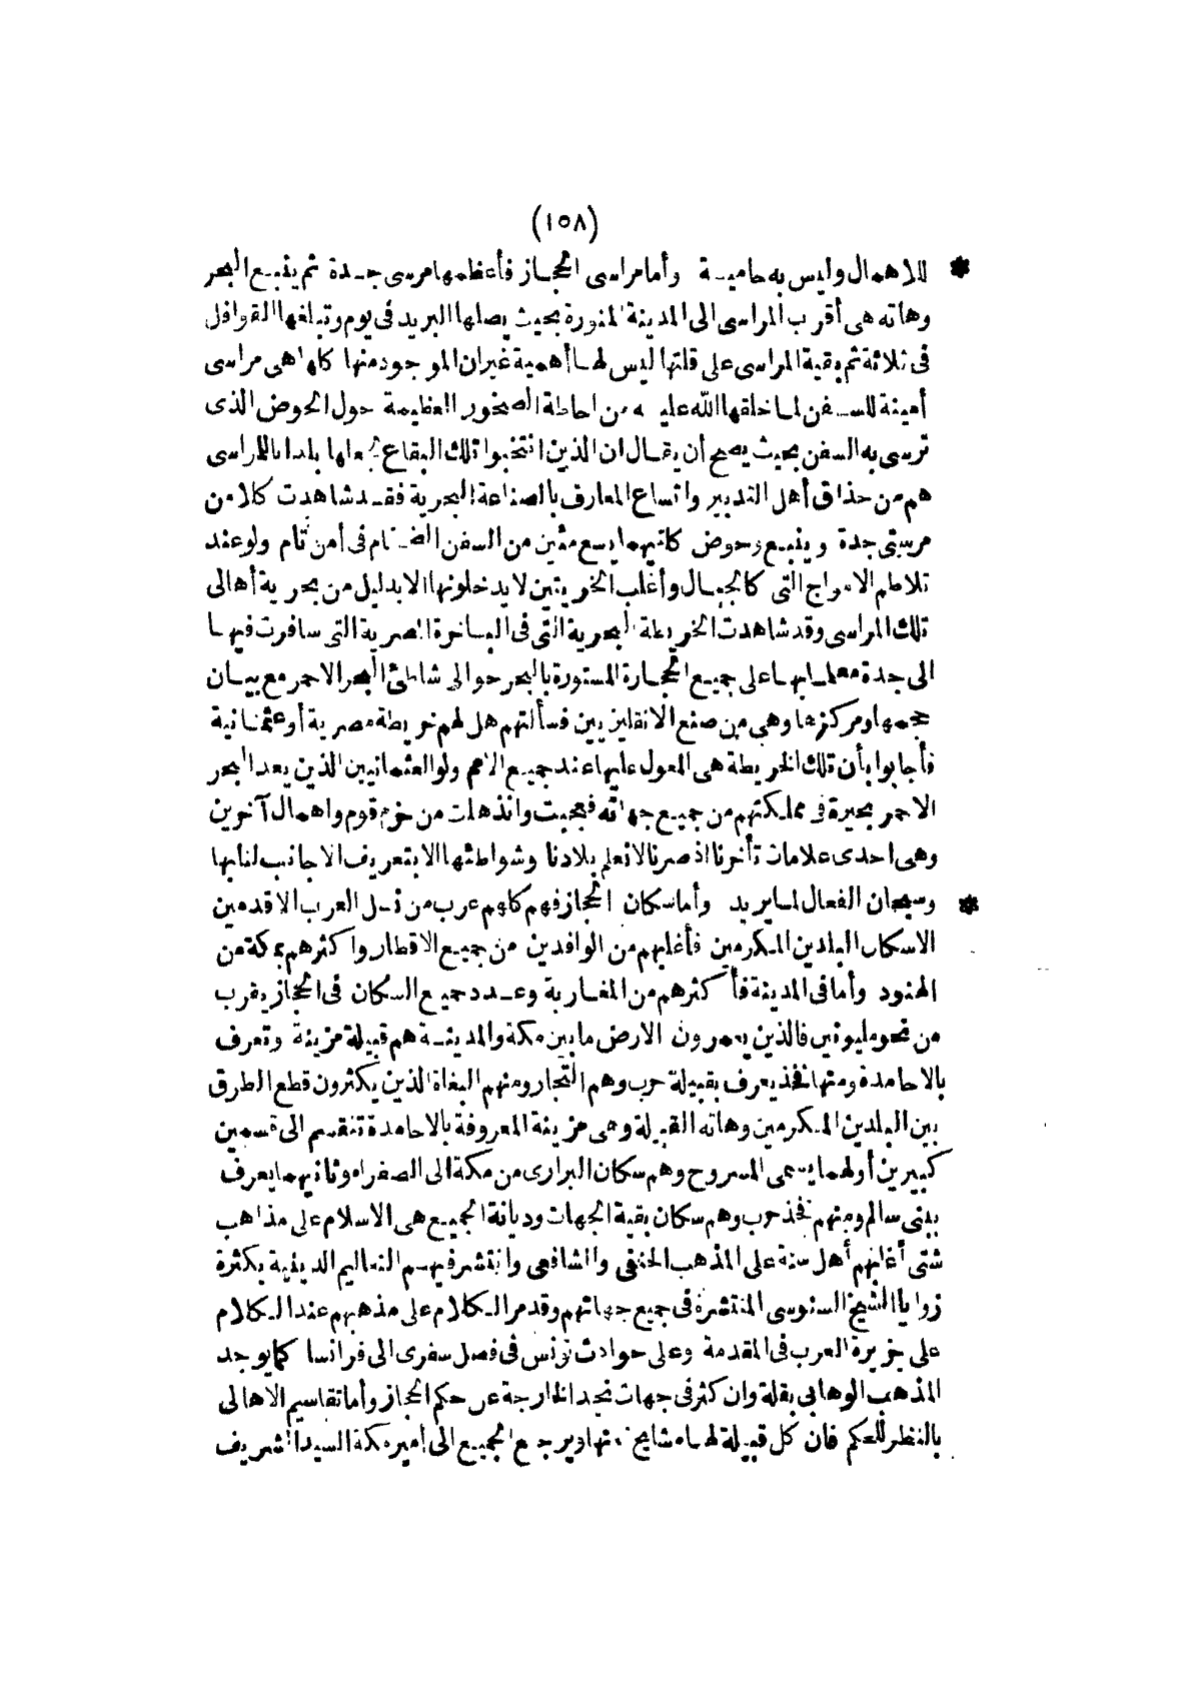 (١٥٨)
* للاهمال وليس به حامية وأما مراسى الحجاز فأعظمها مرسى جدة ثم ينبع البحر
وهاته هى أقرب المراسى الى المدينة المنورة بحيث يصلها البريد فى يوم وتبلغها القوافل
فى ثلاثة ثم بقية المراسى على قلتها ليس لها أهمية غير ان الموجود منها كلها هى مراسى
أمينة للسفن لما خلقها الله عليه من احاطة الصخور العظيمة حول الحوض الذى
ترسى به السفن بحيث يصح أن يقال ان الذين انتخبوا تلك البقاع لجعلها بلدا بالمراسى
هم من حذاق أهل التدبير واتساع المعارف بالصناعة البحرية فقد شاهدت كلا من
مرستى جدة وينبع وحوض كلتيهما يسع مئين من السفن الضخام فى أمن تام ولو عند
تلاطم الامواج التى كالجبال وأغلب الخريتين لا يدخلونها الا بدليل من بحرية أهالى
تلك المراسى وقد شاهدت الخريطة البحرية التى فى الباخرة المصرية التى سافرت فيها
الى جدة معلما بها على جميع الحجارة المستورة بالبحر حوالى شاطئ البحر الاحمر مع بيان
حجمها ومركزها وهى من صنع الانقليزيين فسألتهم هل لهم خريطة مصرية أو عثمانية
فأجابوا بأن تلك الخريطة هى المعول عليها عند جميع الامم ولو العثمانيين الذين يعد البحر
الاحمر بحيرة فى مملكتهم من جميع جهاته فعجبت وانذهلت من حزم قوم واهمال آخرين
وهى احدى علامات تأخرنا اذ صرنا لا نعلم بلادنا وشواطئها الا بتعريف الاجانب لنا بها
* وسبحان الفعال لما يريد وأما سكان الحجاز فهم كلهم عرب من نسل العرب الاقدمين
الا سكان البلدين المكرمين فأغلبهم من الوافدين من جميع الاقطار وأكثرهم بمكة من
الهنود وأما فى المدينة فأكثرهم من المغاربة وعدد جميع السكان فى الحجاز يقرب
من نحو مليونين فالذين يعمرون الارض ما بين مكة والمدينة هم قبيلة مزينة وتعرف
بالاحامدة ومنها فخذ يعرف بقبيلة حرب وهم التجار ومنهم البغاة الذين يكثرون قطع الطرق
بين البلدين المكرمين وهاته القبيلة وهى مزينة المعروفة بالاحامدة تنقسم الى قسمين
كبيرين أولهما يسمى المسروح وهم سكان البرارى من مكة الى الصفراء وثانيهما يعرف
ببنى سالم ومنهم فخذ حرب وهم سكان بقية الجهات وديانة الجميع هى الاسلام على مذاهب
شتى أغلبهم أهل سنة على المذهب الحنفى والشافعى وانتشر فيهم التعاليم الدينية بكثرة
زوايا الشيخ السنوسى المنتشرة فى جميع جهاتهم وقد مر الكلام على مذهبهم عند الكلام
على جزيرة العرب فى المقدمة وعلى حوادث تونس فى فصل سفرى الى فرانسا كما يوجد
المذهب الوهابى بقلة وان كثر فى جهات نجد الخارجة عن حكم الحجاز وأما تقاسيم الاهالى
بالنظر للحكم فان كل قبيلة لها مشايخ منها ويرجع الجميع الى أمير مكة السيد الشريف